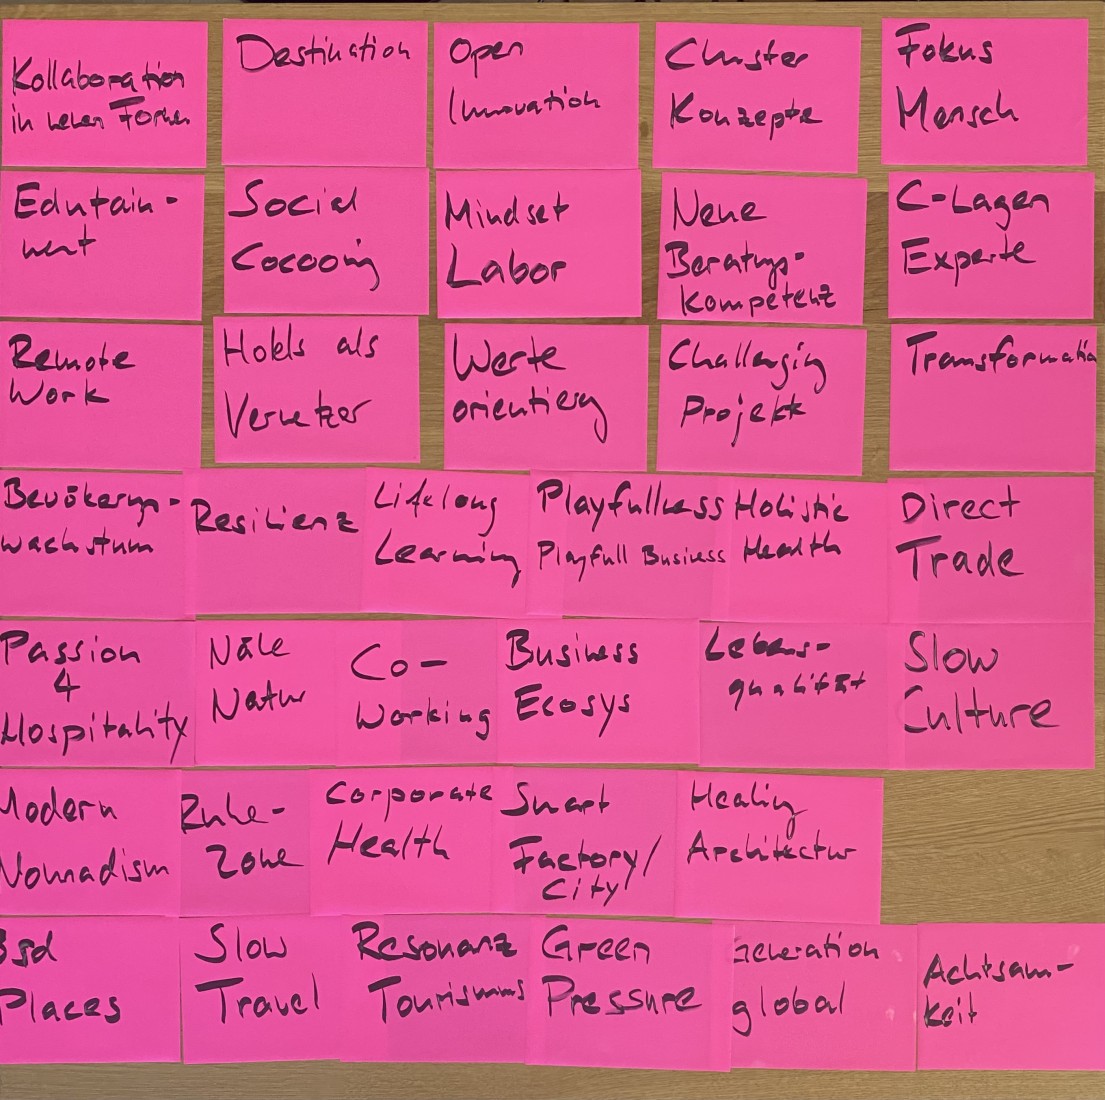 Kollaboration
in neuen Formen
Destination
Open
Innovation
Cluster
Konzepte
Fokus
Mensch
Edutain-
ment
Social
Cocooing
Mindset
Labor
Neue
Beratungs-
kompetenz
C-Lagen
Experte
Remote
Work
Hotels als
Vernetzer
Werte
orientierg
Challenging
Projekt
Transformatio
Bevökerungs-
wachstum
Resilienz
Lifelong
Learning
Playfullness
Playfull Business
Holistic
Health
Direct
Trade
Passion
4
Hospitality
Näle
Natur
Co-
Working
Business
Ecosys
Lebens-
qualität
Slow
Culture
Modern
Nomadism
Ruhe-
Zone
Corporate
Health
Smart
Factory/
City
Healing
Architektur
Places
Slow
Travel
Resonanz
Tourismus
Green
Pressure
Generation
global
Achtsam-
keit